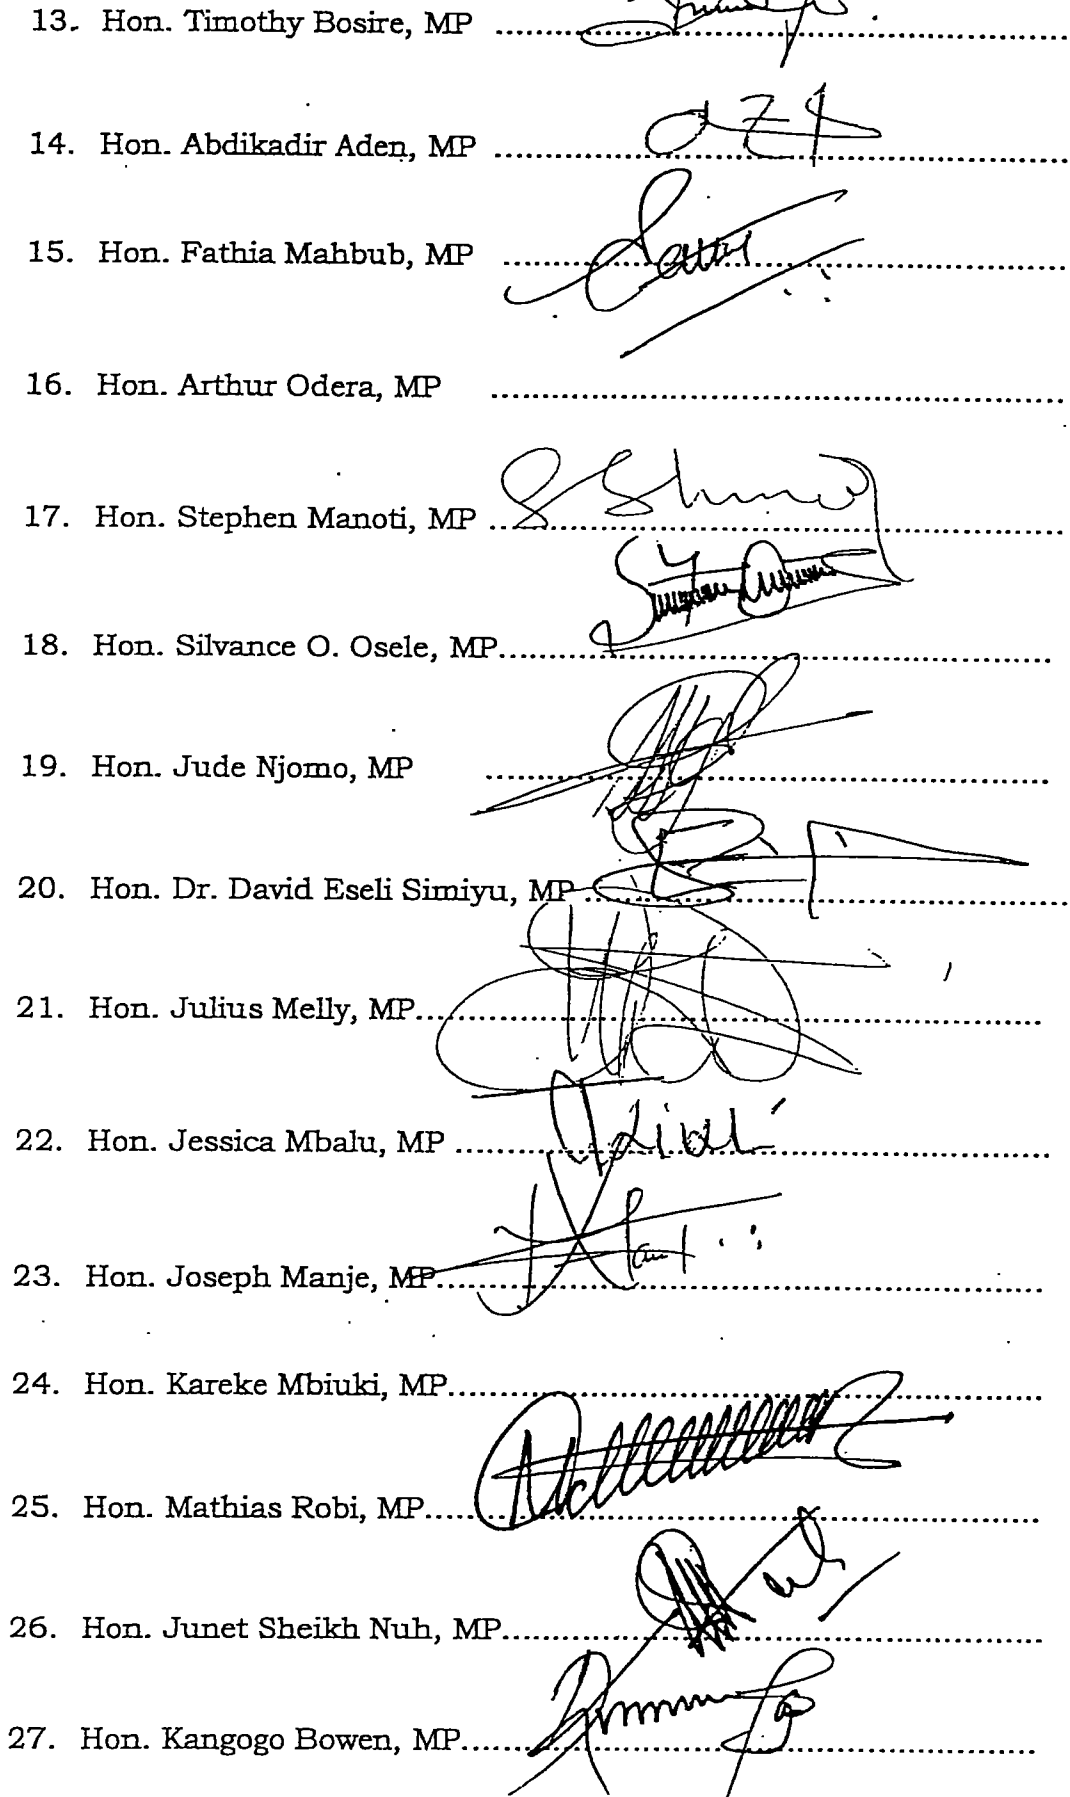 13. Hon. Timothy Bosire, MP ..........
14. Hon. Abdikadir Aden, MP ..........
15. Hon. Fathia Mahbub, MP ..........
16. Hon. Arthur Odera, MP ..........
17. Hon. Stephen Manoti, MP ..........
18. Hon. Silvance O. Osele, MP..........
19. Hon. Jude Njomo, MP ..........
20. Hon. Dr. David Eseli Simiyu, MP ..........
21. Hon. Julius Melly, MP..........
22. Hon. Jessica Mbalu, MP ..........
23. Hon. Joseph Manje, MP..........
24. Hon. Kareke Mbiuki, MP..........
25. Hon. Mathias Robi, MP..........
26. Hon. Junet Sheikh Nuh, MP..........
27. Hon. Kangogo Bowen, MP..........